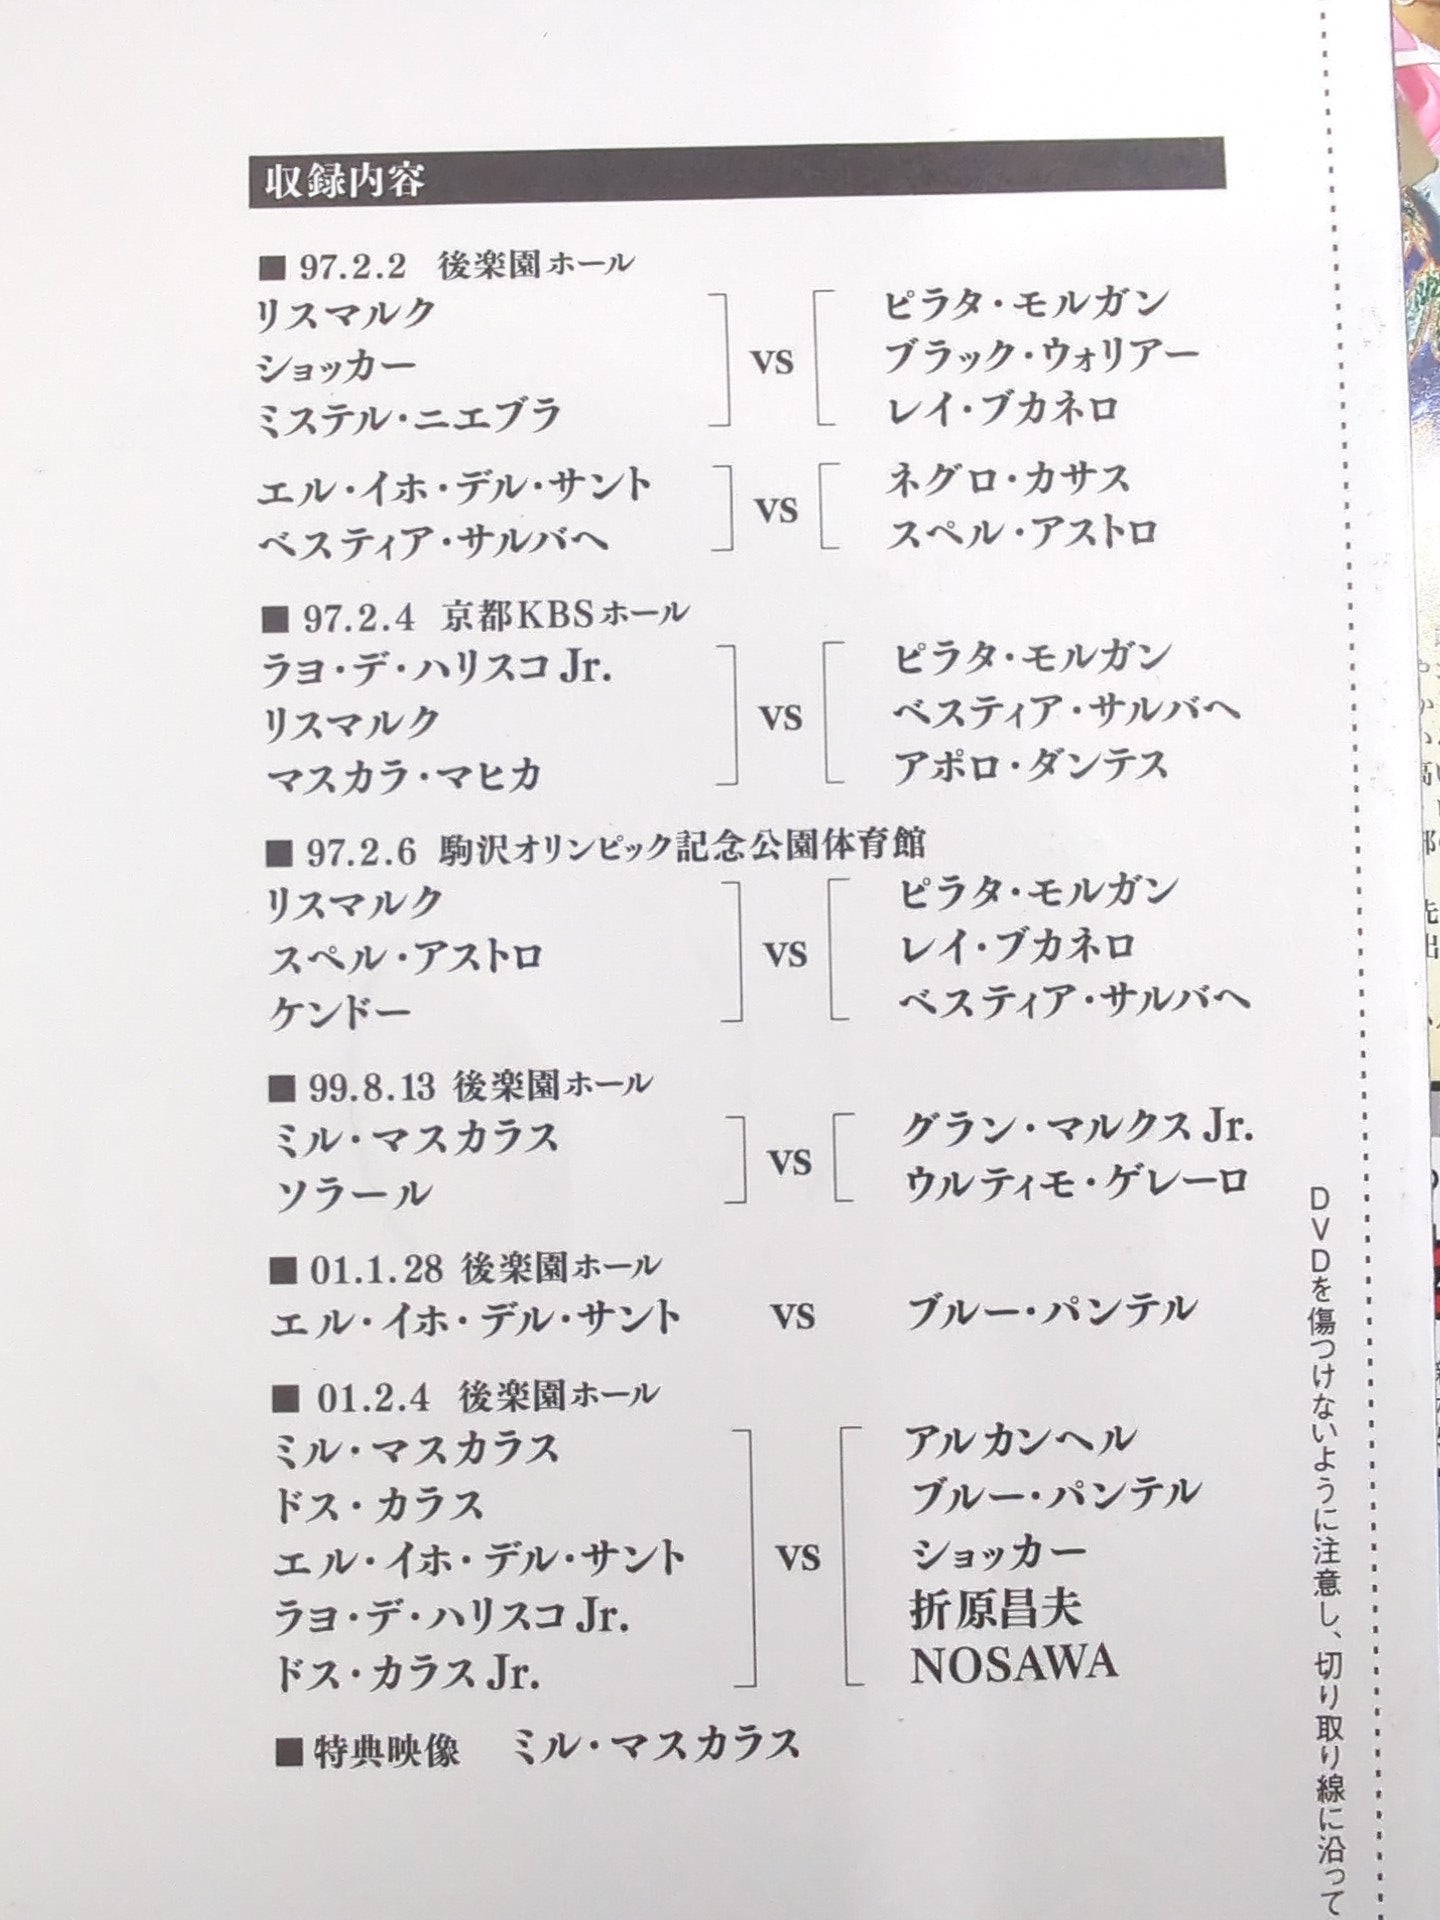 収録内容
■ 97.2.2 後楽園ホール
リスマルク
ショッカー
ミステル・ニエブラ
vs
ピラタ・モルガン
ブラック・ウォリアー
レイ・ブカネロ
エル・イホ・デル・サント
ベスティア・サルバヘ
vs
ネグロ・カサス
スペル・アストロ
■ 97.2.4 京都KBSホール
ラヨ・デ・ハリスコJr.
リスマルク
マスカラ・マヒカ
vs
ピラタ・モルガン
ベスティア・サルバヘ
アポロ・ダンテス
■ 97.2.6 駒沢オリンピック記念公園体育館
リスマルク
スペル・アストロ
ケンドー
vs
ピラタ・モルガン
レイ・ブカネロ
ベスティア・サルバヘ
■ 99.8.13 後楽園ホール
ミル・マスカラス
ソラール
vs
グラン・マルクスJr.
ウルティモ・ゲレーロ
■ 01.1.28 後楽園ホール
エル・イホ・デル・サント
vs
ブルー・パンテル
■ 01.2.4 後楽園ホール
ミル・マスカラス
ドス・カラス
エル・イホ・デル・サント
ラヨ・デ・ハリスコJr.
ドス・カラスJr.
vs
アルカンヘル
ブルー・パンテル
ショッカー
折原昌夫
NOSAWA
■特典映像 ミル・マスカラス
DVDを傷つけないように注意し、切り取り線に沿って